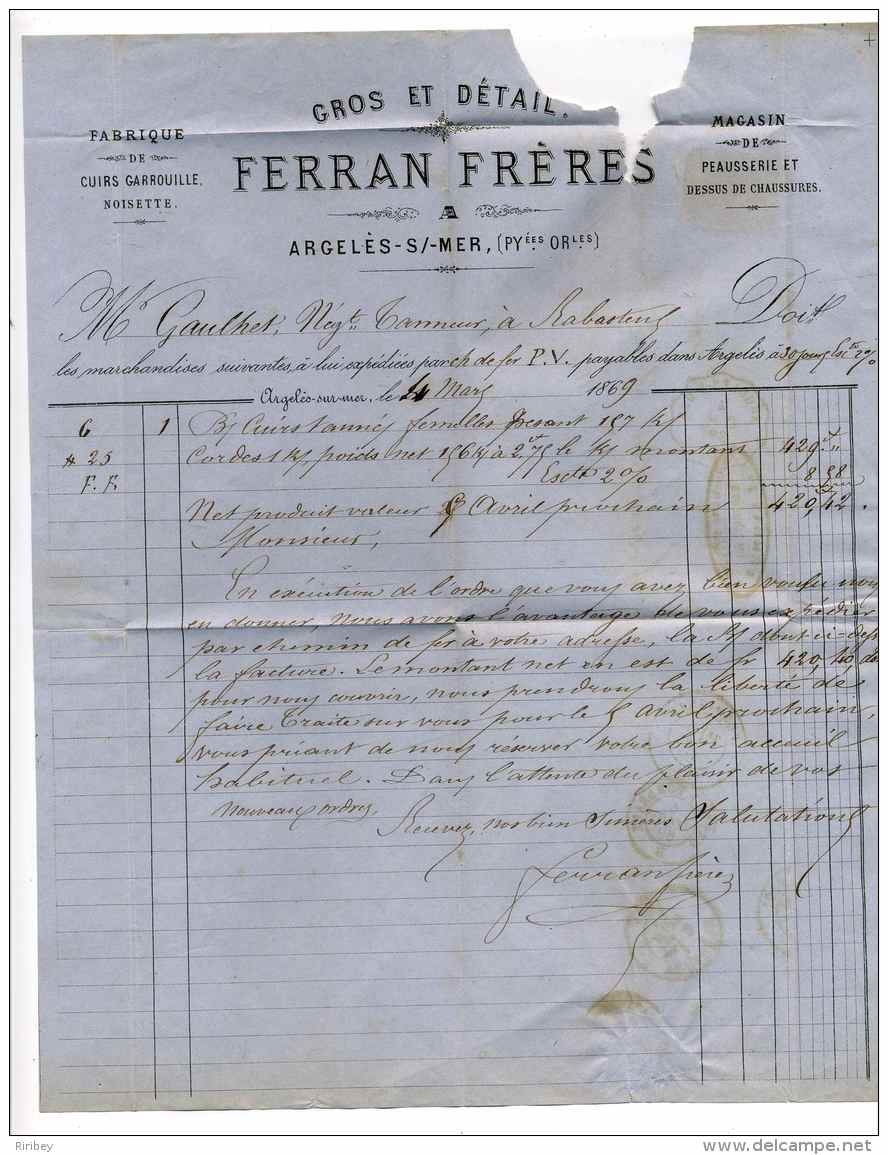 GROS ET DÉTAIL.
FABRIQUE
DE
CUIRS GARROUILLE,
NOISETTE.
FERRAN FRÈRES
A
ARGELÈS-S/-MER, (PYÉES ORLES)
MAGASIN
DE
PEAUSSERIE ET
DESSUS DE CHAUSSURES.
Mr Gaulhet, Négt Tanneur, à Rabastens Doit
les marchandises suivantes, à lui expédiées par ch de fer P.V. payables dans Argelès à 30 jours 2%
Argelès-sur-mer, le 4 Mars 1869
6 1 Bs Cuirs tannés femelles pesant 157 ks
# 25 Cordes 1 ks, poids net 156 ks à 2.75 le ks montant 429 "
F. F. Escte 2% 8 58
Net produit valeur 5 Avril prochain 420,42.
Monsieur,
En exécution de l'ordre que vous avez bien voulu nous
en donner, nous avons l'avantage de vous expédier
par chemin de fer à votre adresse, la Bs dont ci-dess
la facture. Le montant net en est de fr 420,40, do
pour nous couvrir, nous prendrons la liberté de
faire traite sur vous pour le 5 avril prochain,
vous priant de nous réserver votre bon accueil
habituel. Dans l'attente du plaisir de vos
nouveaux ordres,
Recevez, nos bien sincères Salutations
Ferran frères
Riribey
www.delcampe.net